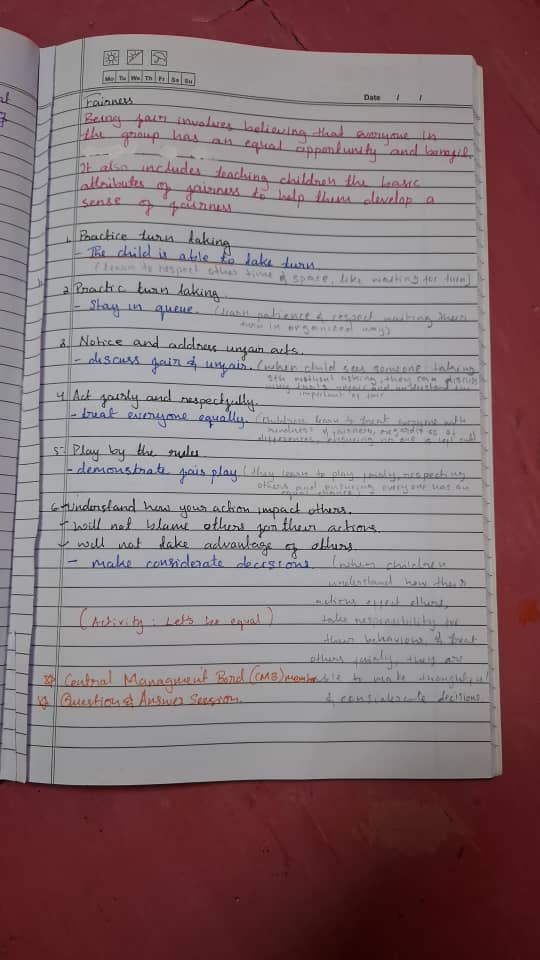 Mo Tu We Th Fr Sa Su
Date / /
Fairness
Being fair involves believing that everyone in
the group has an equal opportunity and benefit.
It also includes teaching children the basic
attributes of fairness to help them develop a
sense of fairness
1. Practice turn taking
- The child is able to take turn.
(learn to respect other time & space, like waiting for turn)
2 Practic turn taking.
- Stay in queue. (learn patience & respect waiting their
turn in organized way)
3. Notice and address unfair acts.
- discuss fair & unfair. (when child sees someone taking
sth without asking, they can discuss
why that's unfair and understand the
important of fair
4. Act fairly and respectfully.
- treat everyone equally. (children learn to treat everyone with
kindness & fairness, regardless of
differences, ensuring no one is left out)
5. Play by the rules
- demonstrate fair play (they learn to play fairly, respecting
others and ensuring everyone has an
equal chance)
6. Understand how your action impact others.
- will not blame others for their actions.
- will not take advantage of others.
- make considerate decisions. (when children
understand how their
actions effect others,
(Activity: Let's be equal) take responsibility for
their behaviour, & treat
others fairly, they are
Central Managment Bord (CMB) member able to make thoughtful
Question & Answer Session. & considerate decisions.